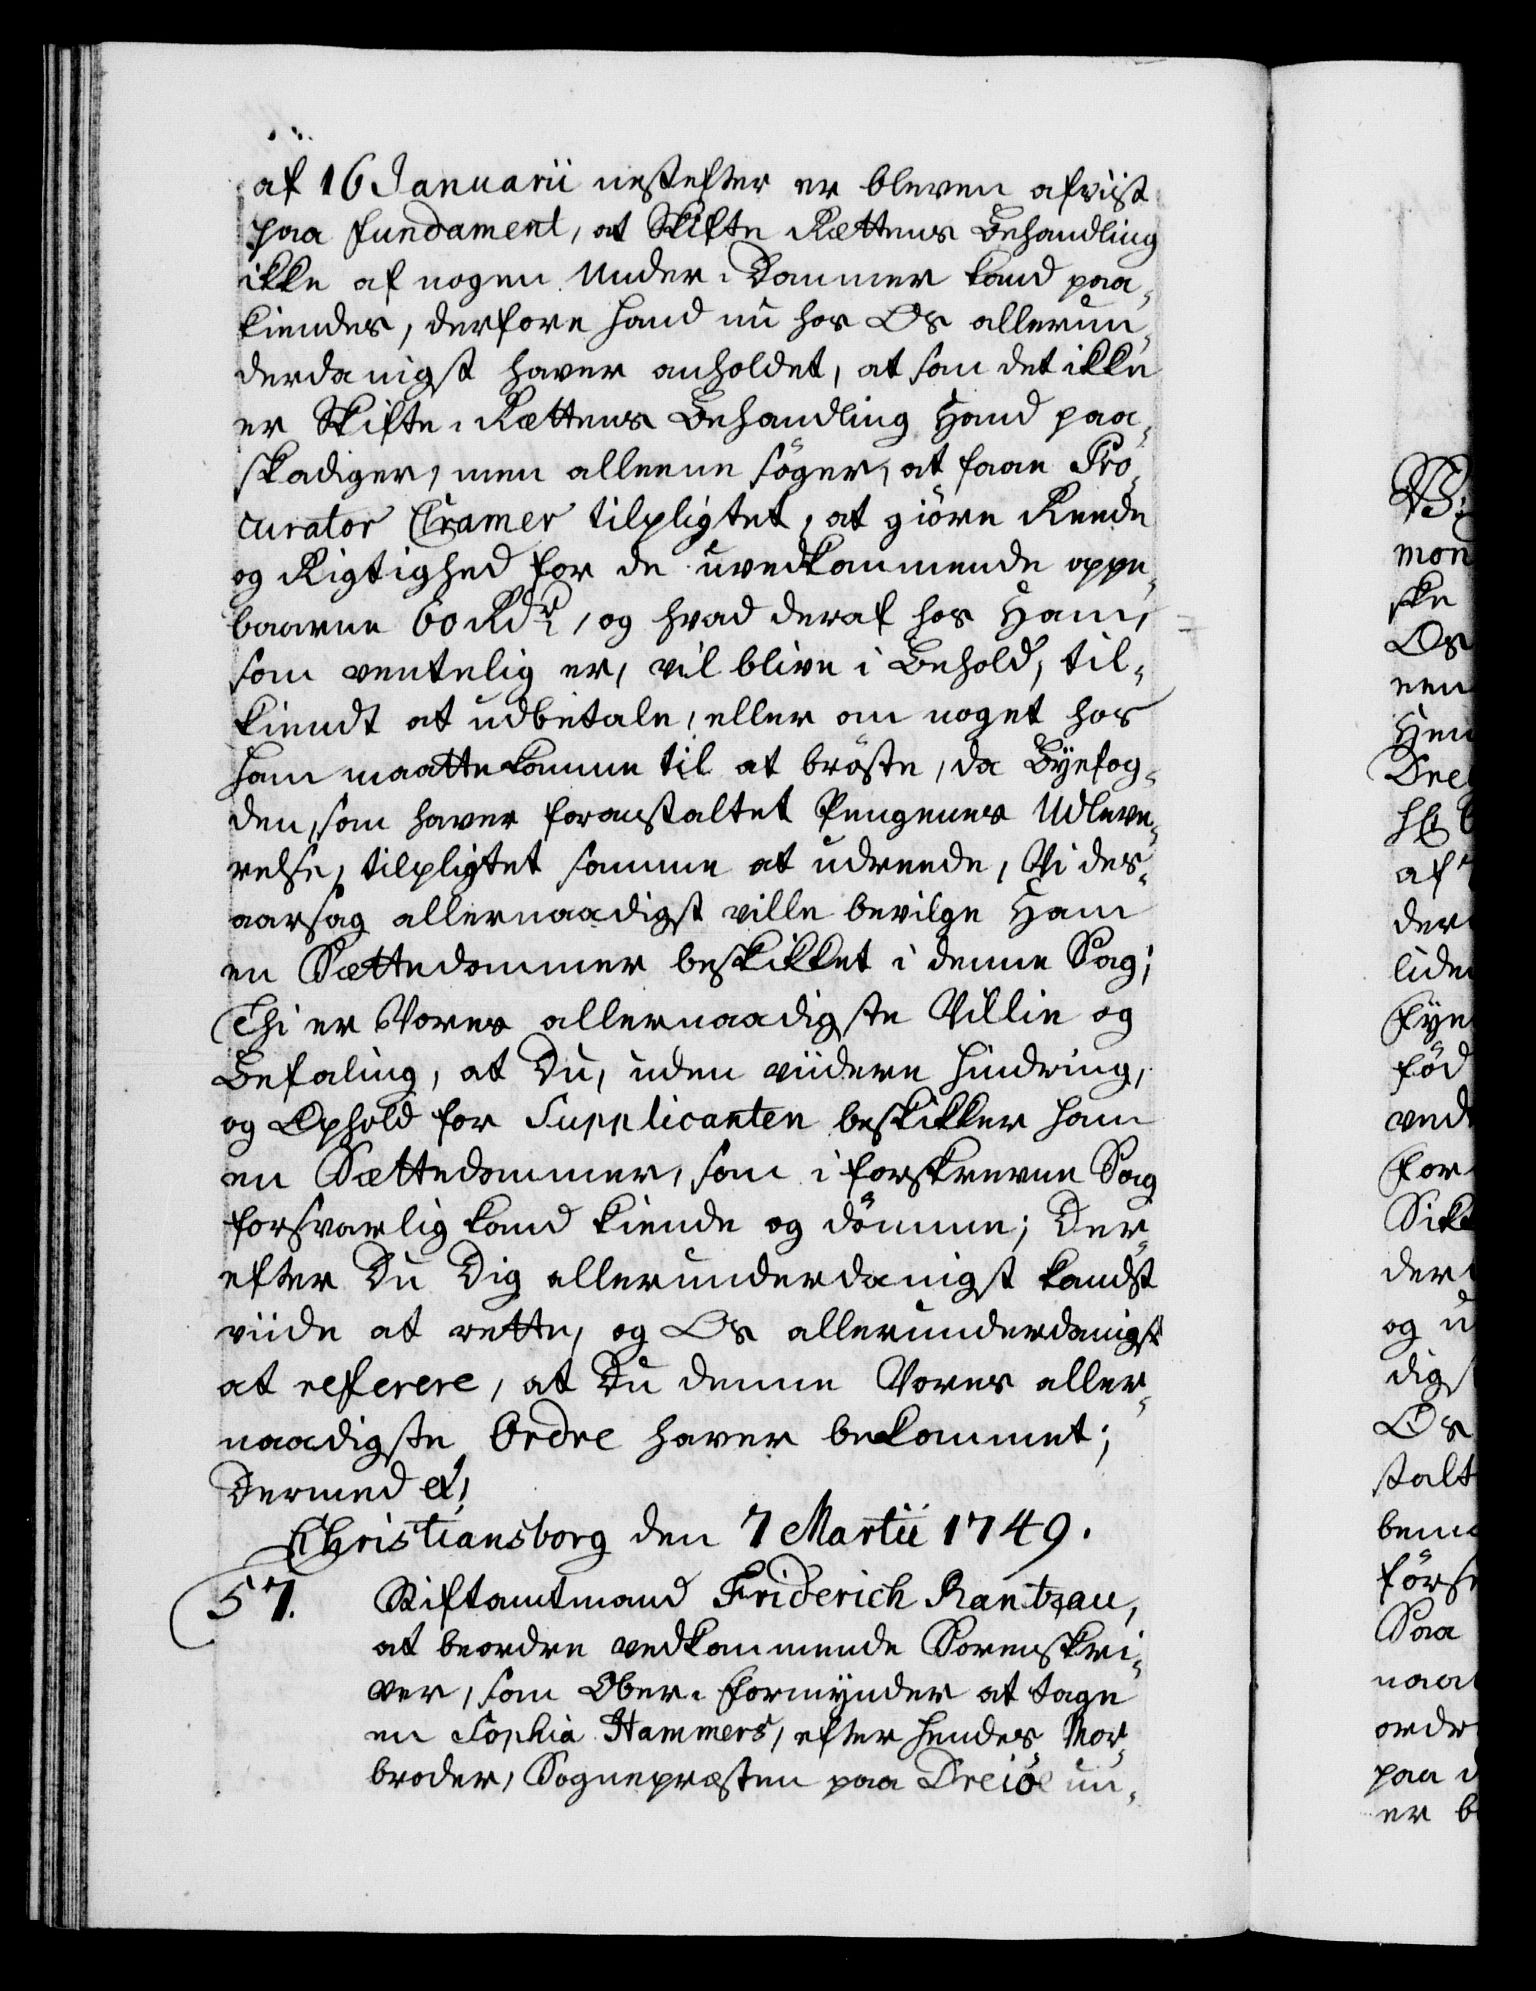 af 16 Januarii nestefter er bleven afviist
paa fundament, at Skifte Rettens Behandling
ikke af nogen Under-Dommer kand paa-
kiendes, derfore hand nu hos Os allerun-
derdanigst haver anholdet, at som det ikke
er Skifte-Rettens Behandling Hand paa-
skadiger, men alleene söger, at faae Pro-
curator Cramer tilpligtet, at giöre Reede
og Rigtighed for de uvedkommende oppe-
baarne 60 Rdr, og hvad deraf hos Ham,
som ventelig er, vil blive i Behold, til-
kiendt at udbetale, eller om noget hos
ham maatte komme til at bröste, da Byefog-
den, som haver foranstaltet Pengenes Udleve-
relse, tilpligtet samme at udreede, Vi des-
aarsag allernaadigst ville bevilge Ham
en Sættedommer beskikket i denne Sag;
Thi er Vores allernaadigste Villie og
Befaling, at Du, uden viidere hindring,
og Ophold for Supplicanten beskikker ham
en Sættedommer, som i forskrevne Sag
forsvarlig kand kiende og dömme; Der-
efter Du Dig allerunderdanigst kandst
viide at rette, og Os allerunderdanigst
at referere, at Du denne Vores aller-
naadigste Ordre haver bekommet;
Dermed et,
Christiansborg den 7 Martii 1749.
57. Stiftamtmand Friderich Rantzau,
at beordre vedkommende Sorenskri-
ver, som Ober-Formynder at tage
en Sophia Hammers, efter hendes Mor-
broder, Sognepræsten paa Dreiöe un-
mon
ske
Os
een
Dre
af
der
lide
fye
föd
ved
for
der
og u
dig
Os
stalt
förs
Saa
naa
ordr
paa
er b